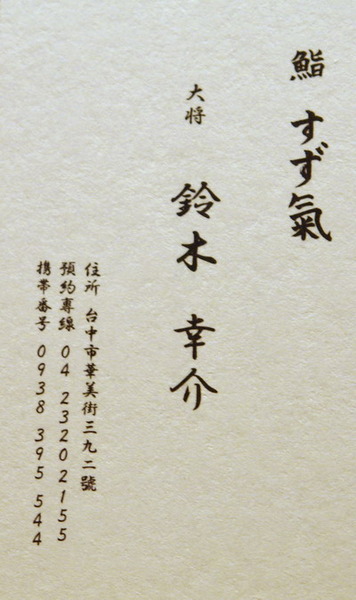 鮨 すず氣
大将 鈴木 幸介
住所 台中市華美街三九二號
預約專線 04 23202155
携帯番号 0938 395 544